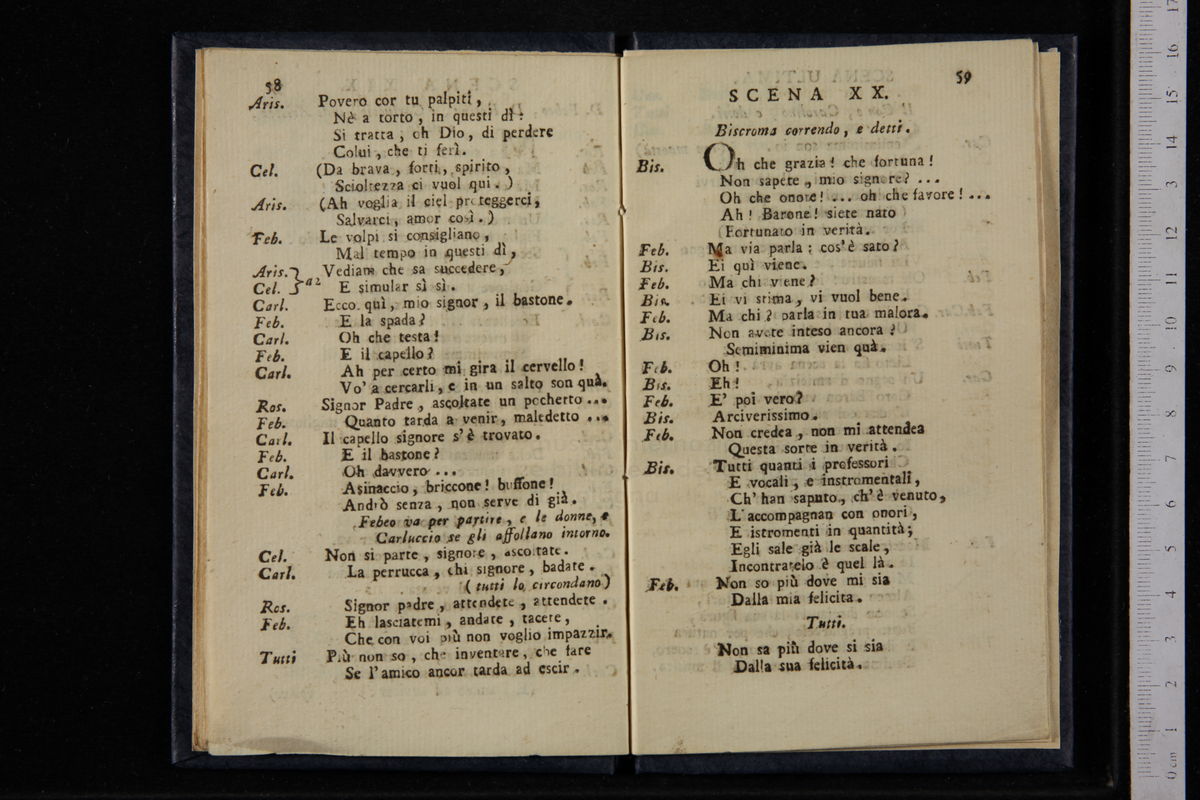 58
Aris. Povero cor tu palpiti,
Nè a torto, in questi dì:
Si tratta, oh Dio, di perdere
Colui, che ti ferì.
Cel. (Da brava, forti, spirito,
Scioltezza ci vuol qui.)
Aris. (Ah voglia il ciel proteggerci,
Salvarci, amor così.)
Feb. Le volpi si consigliano,
Mal tempo in questi dì,
Aris. Vediam che sa succedere,
Cel. a2 E simular sì sì.
Carl. Ecco quì, mio signor, il bastone.
Feb. E la spada?
Carl. Oh che testa!
Feb. E il capello?
Carl. Ah per certo mi gira il cervello!
Vo' a cercarli, e in un salto son quà.
Ros. Signor Padre, ascoltate un pocherto...
Feb. Quanto tarda a venir, maledetto...
Carl. Il capello signore s'è trovato.
Feb. E il bastone?
Carl. Oh davvero...
Feb. Asinaccio, briccone! buffone!
Andrò senza, non serve di già.
Febeo va per partire, e le donne, e
Carluccio se gli affollano intorno.
Cel. Non si parte, signore, ascoltate.
Carl. La perrucca, chi signore, badate.
(tutti lo circondano)
Ros. Signor padre, attendete, attendete.
Feb. Eh lasciatemi, andate, tacete,
Che con voi più non voglio impazzir.
Tutti Più non so, che inventare, che fare
Se l'amico ancor tarda ad escir.
59
SCENA XX.
Biscroma correndo, e detti.
Bis. Oh che grazia! che fortuna!
Non sapete, mio signore?...
Oh che onore!... oh che favore!...
Ah! Barone! siete nato
Fortunato in verità.
Feb. Ma via parla: cos'è sato?
Bis. Ei quì viene.
Feb. Ma chi viene?
Bis. Ei vi stima, vi vuol bene.
Feb. Ma chi? parla in tua malora.
Bis. Non avete inteso ancora?
Semiminima vien quà.
Feb. Oh!
Bis. Eh!
Feb. E' poi vero?
Bis. Arciverissimo.
Feb. Non credea, non mi attendea
Questa sorte in verità.
Bis. Tutti quanti i professori
E vocali, e instromentali,
Ch'han saputo, ch'è venuto,
L'accompagnan con onori,
E istromenti in quantità;
Egli sale già le scale,
Incontratelo è quel là.
Feb. Non so più dove mi sia
Dalla mia felicita.
Tutti.
Non sa più dove si sia
Dalla sua felicità.
0 cm 1 2 3 4 5 6 7 8 9 10 11 12 13 14 15 16 17